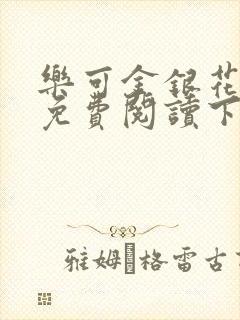 樂可金銀花
免費閱讀下
雅姆 格雷古